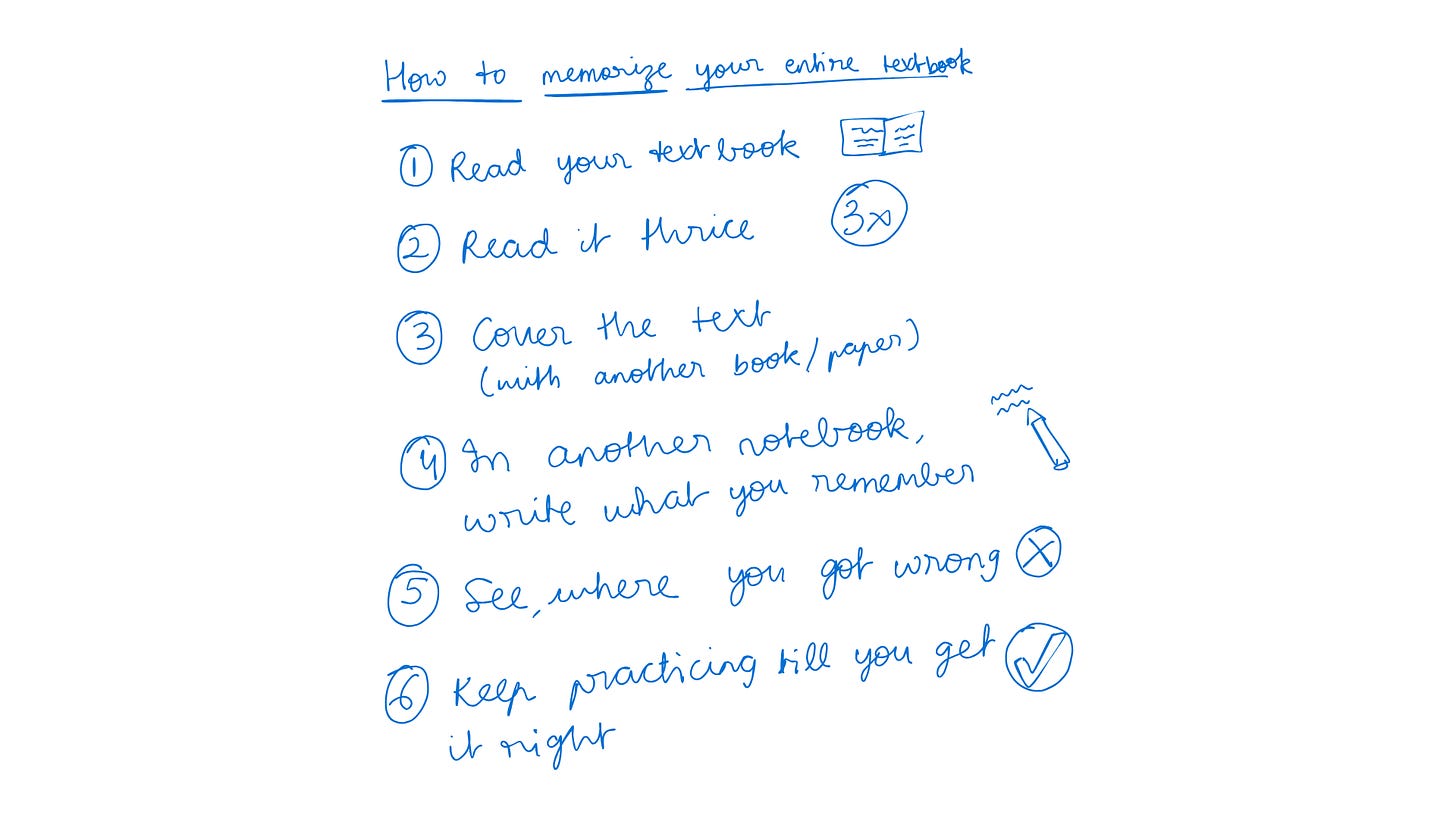 How to memorize your entire textbook
① Read your textbook
② Read it thrice 3x
③ Cover the text
(with another book/paper)
④ In another notebook,
write what you remember
⑤ See, where you got wrong
⑥ Keep practicing till you get
it right